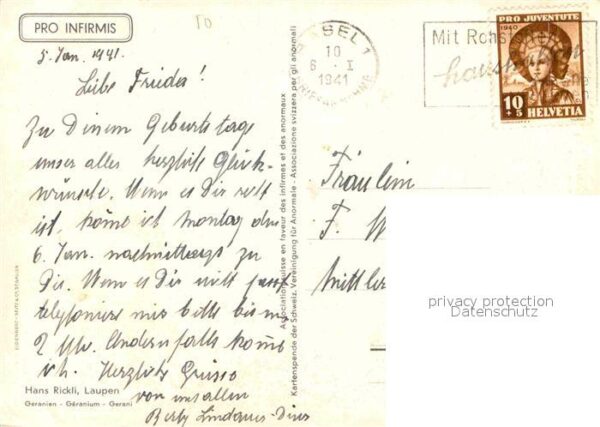 PRO INFIRMIS
5. Jan. 1941.
Liebe Frieda!
Zu Deinem Geburtstage
unser aller herzliche Glück-
wünsche. Wenn es Dir recht
ist, komme ich Montag den
6. Jan. nachmittags zu
Dir. Wenn es Dir nicht passt
telefoniere mir bitte bis um
2 Uhr. Andernfalls komme
ich. Herzliche Grüsse
von uns allen
Hans Rickli, Laupen
Geranien - Géranium - Gerani
Association suisse en faveur des infirmes et des anormaux
Kartenspende der Schweiz. Vereinigung für Anormale - Associazione svizzera per gli anormali
BASEL 1
10
6. I
1941
Mit Rohs
haushalten
PRO JUVENTUTE
1940
10
+5
HELVETIA
Fräulein
F. W
privacy protection
Datenschutz